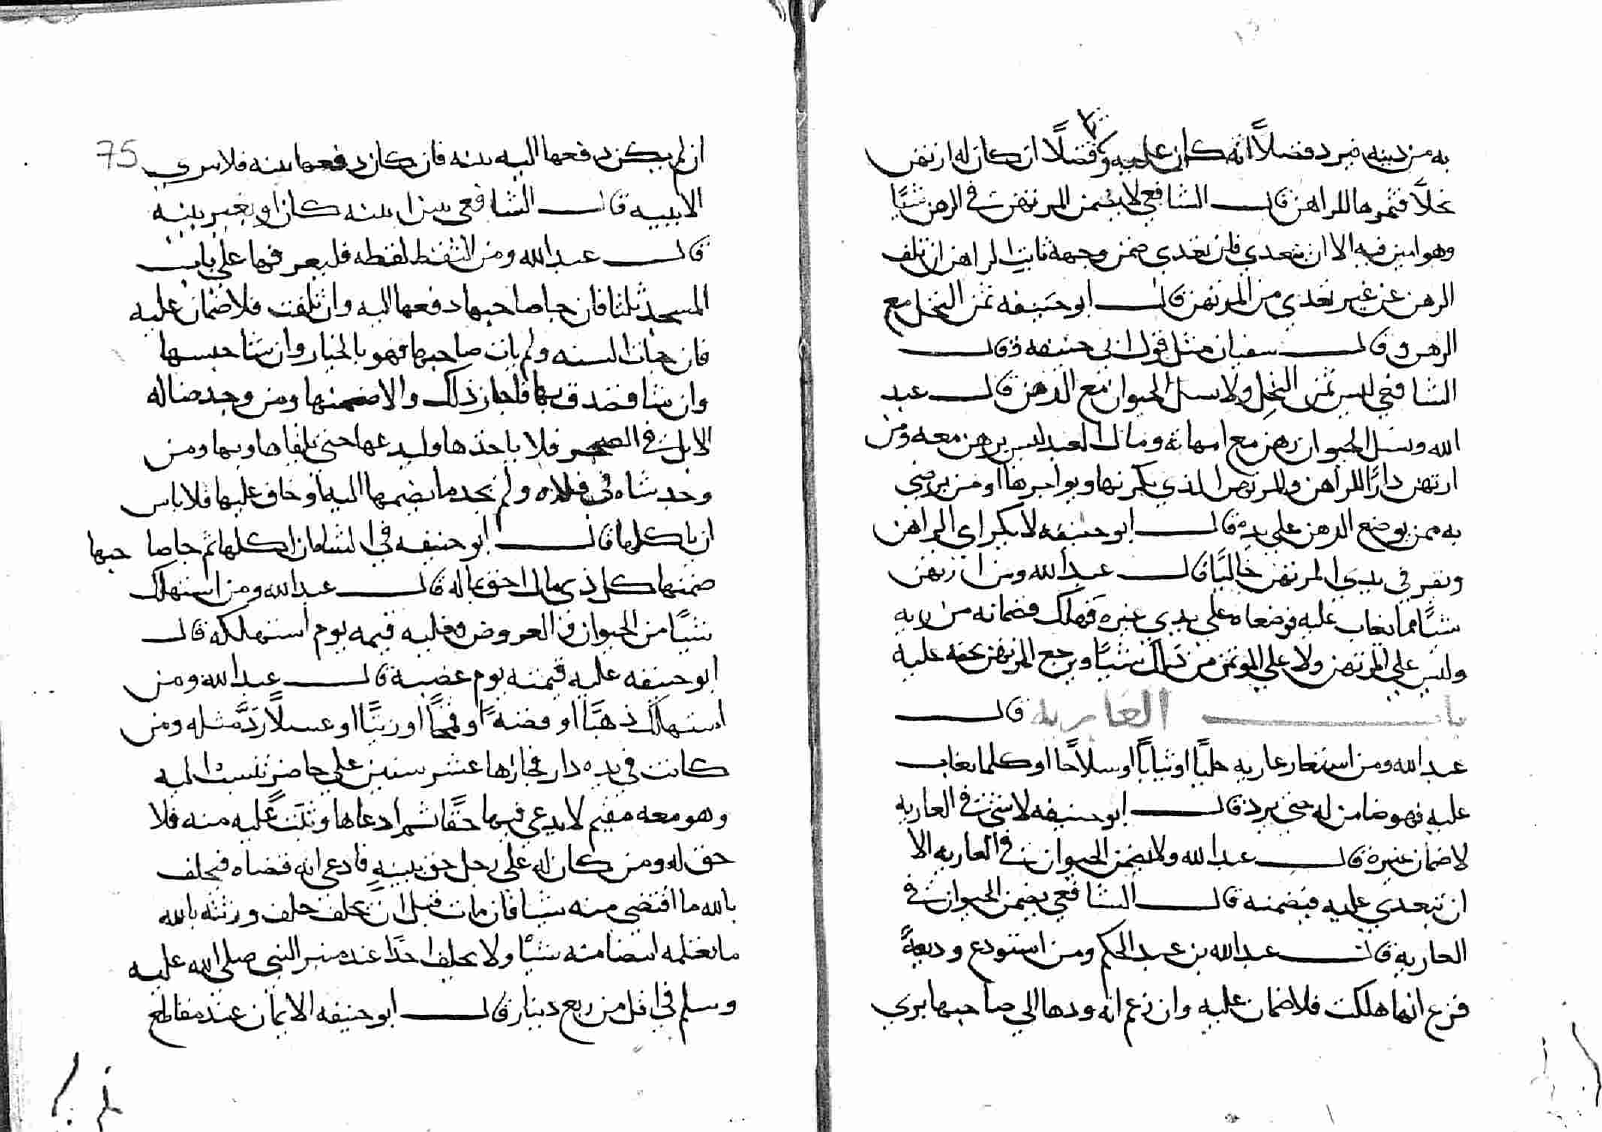 به من دينه فيرد فضلاً انه كان عليه وفضلاً ان كان له ارتهن
نخلاً فثمرها للراهن قال الشافعي لا يضمن المرتهن في الرهن شيًا
وهو امين فيه الا ان يتعدي فان تعدي ضمن وجهة ثانيه للراهن ان تلف
الرهن عن غير تعدي من المرتهن قال ابو حنيفه ثمن النخل مع
الرهن وقال سفيان مثل قول ابي حنيفه وقال
الشافعي ليس ثمن النخل ولا نسل الحيوان مع الرهن قال عبد
الله ونسل الحيوان رهن مع امهاته ومال العبد ليس برهن معه ومن
ارتهن دارًا للراهن وللمرتهن الذي يكرنها ويواجرها او من يرضي
به ممن يوضع الرهن علي يده قال ابو حنيفه لا يكرا اي الراهن
وتقر في يدي المرتهن خاليًا قال عبد الله ومن ارتهن
شيًا مما يغاب عليه فوضعاه علي يدي غيره فهلك فضمانه من ربه
وليس علي المرتهن ولا علي الموتمن من ذلك شيًا ويرجع المرتهن بحقه عليه
باب العاريه قال
عبد الله ومن استعار عاريه حليًا او ثيابًا او سلاحًا او كلما يغاب
عليه فهو ضامن له حتي يرد قال ابو حنيفه لا شي في العاريه
لا ضمان غيره قال عبد الله ولا يضمن الحيوان في العاريه الا
ان يتعدي عليه فيضمنه قال الشافعي يضمن الحيوان في
العاريه قال عبد الله بن عبد الحكم ومن استودع وديعةً
فزعم انها هلكت فلا ضمان عليه وان زعم انه ردها الي صاحبها بري
75
ان لم يكن دفعها اليه ببينه فان كان دفعها ببينه فلا يبري
الا ببينه قال الشافعي يبرا ببينه كان او بغير بينه
قال عبد الله ومن التقط لقطه فليعرفها علي باب
المسجد ثلثا فان جا صاحبها دفعها اليه وان تلفت فلا ضمان عليه
فان جات السنه ولم يات صاحبها فهو بالخيار وان شا حبسها
وان شا تصدق بها فاجاز ذلك والا ضمنها ومن وجد ضاله
الابل في الصحر فلا ياخذها وليدعها حتي يلقاها ربها ومن
وجد شاه في فلاه ولم يجد ما يضمها اليه او خاف عليها فلا باس
ان ياكلها قال ابو حنيفه في الشاه ان اكلها ثم جا صاحبها
ضمنها كل ذي مال احق بماله قال عبد الله ومن استهلك
شيًا من الحيوان او العروض فعليه قيمه يوم استهلكه قال
ابو حنيفه عليه قيمته يوم غصبه قال عبد الله ومن
استهلك ذهبًا او فضة او قمحًا او زيتًا او عسلاً رد مثله ومن
كانت في يده دار فحازها عشر سنين علي حاضر تنسب اليه
وهو معه مقيم لا يدعي فيها حقًا ثم ادعاها وثبت عليه منه فلا
حق له ومن كان له علي رجل حق ببينه فادعي انه قضاه فيحلف
بالله ما اقتضي منه شيا فان مات قبل ان يحلف حلف ورثته بالله
ما نعلمه اقتضا منه شيًا ولا يحلف احدًا عند منبر النبي صلي الله عليه
وسلم في اقل من ربع دينار قال ابو حنيفه الايمان عند مقاطع